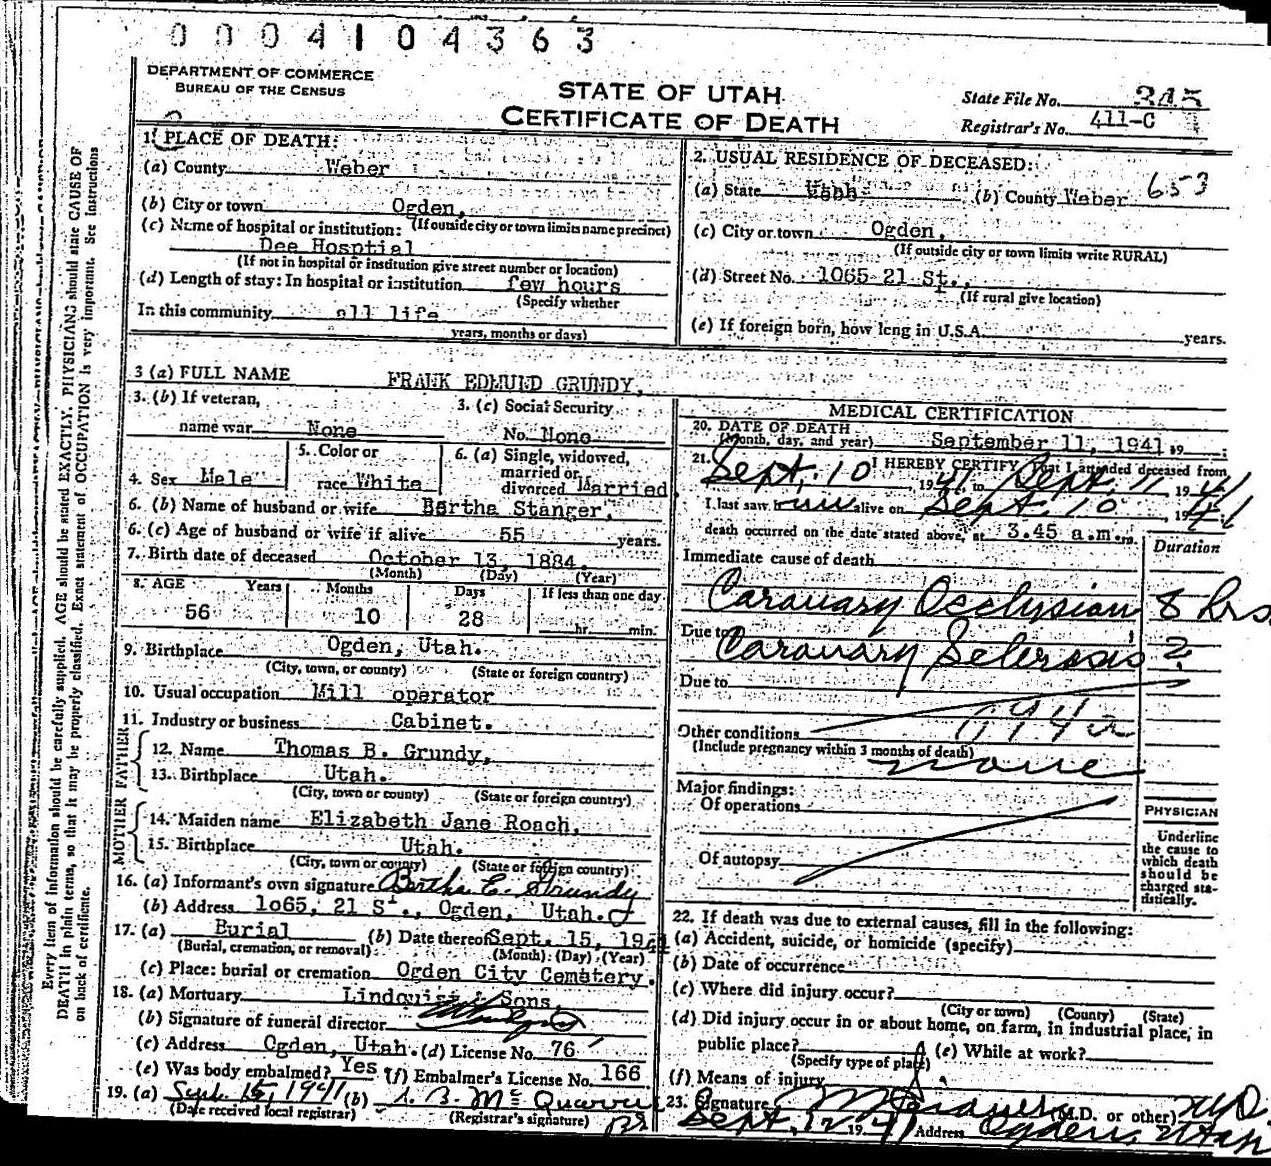 0004104363
DEPARTMENT OF COMMERCE
BUREAU OF THE CENSUS
STATE OF UTAH
CERTIFICATE OF DEATH
State File No. 345
Registrar's No. 411-C
1. PLACE OF DEATH:
(a) County Weber
(b) City or town Ogden,
(If outside city or town limits name precinct)
(c) Name of hospital or institution:
Dee Hosptial
(If not in hospital or institution give street number or location)
(d) Length of stay: In hospital or institution few hours
(Specify whether
In this community all life
years, months or days)
2. USUAL RESIDENCE OF DECEASED:
(a) State (b) County Weber 653
(c) City or town Ogden,
(If outside city or town limits write RURAL)
(d) Street No. 1065 21 St.,
(If rural give location)
(e) If foreign born, how long in U.S.A. years.
3 (a) FULL NAME FRANK EDMUND GRUNDY,
3. (b) If veteran,
name war None
3. (c) Social Security
No. None
4. Sex Male
5. Color or
race White
6. (a) Single, widowed,
married or
divorced Married
6. (b) Name of husband or wife Bertha Stanger,
6. (c) Age of husband or wife if alive 55 years.
7. Birth date of deceased October 13, 1884.
(Month) (Day) (Year)
8. AGE Years Months Days If less than one day
56 10 28 hr. min.
9. Birthplace Ogden, Utah.
(City, town, or county) (State or foreign country)
10. Usual occupation Mill operator
11. Industry or business Cabinet.
FATHER
12. Name Thomas B. Grundy,
13. Birthplace Utah.
(City, town or county) (State or foreign country)
MOTHER
14. Maiden name Elizabeth Jane Roach,
15. Birthplace Utah.
(City, town or county) (State or foreign country)
16. (a) Informant's own signature Bertha E. Grundy
(b) Address 1o65, 21 St., Ogden, Utah.
17. (a) Burial (b) Date thereof Sept. 15, 1941
(Burial, cremation, or removal) (Month) (Day) (Year)
(c) Place: burial or cremation Ogden City Cemetery.
18. (a) Mortuary Lindquist & Sons,
(b) Signature of funeral director
(c) Address Ogden, Utah. (d) License No. 76
(e) Was body embalmed? Yes (f) Embalmer's License No. 166
19. (a) Sept. 15, 1941 (b)
(Date received local registrar) (Registrar's signature)
MEDICAL CERTIFICATION
20. DATE OF DEATH
(Month, day, and year) September 11, 1941 19
21. I HEREBY CERTIFY That I attended deceased from
Sept. 10 1941 to Sept. 11 1941
I last saw him alive on Sept. 10, 1941
death occurred on the date stated above, at 3.45 a.m. m.
Duration
Immediate cause of death
Caronary Occlusion 8 hrs
Due to Caronary Sclerosis ?
Due to
94a
Other conditions
(Include pregnancy within 3 months of death)
none
Major findings:
Of operations
Of autopsy
PHYSICIAN
Underline
the cause to
which death
should be
charged sta-
tistically.
22. If death was due to external causes, fill in the following:
(a) Accident, suicide, or homicide (specify)
(b) Date of occurrence
(c) Where did injury occur?
(City or town) (County) (State)
(d) Did injury occur in or about home, on farm, in industrial place, in
public place? (e) While at work?
(Specify type of place)
(f) Means of injury
23. Signature (M.D. or other) M.D.
Sept. 12 1941 Address Ogden, Utah
Every item of information should be carefully supplied. AGE should be stated EXACTLY. PHYSICIANS should state CAUSE OF
DEATH in plain terms, so that it may be properly classified. Exact statement of OCCUPATION is very important. See Instructions
on back of certificate.